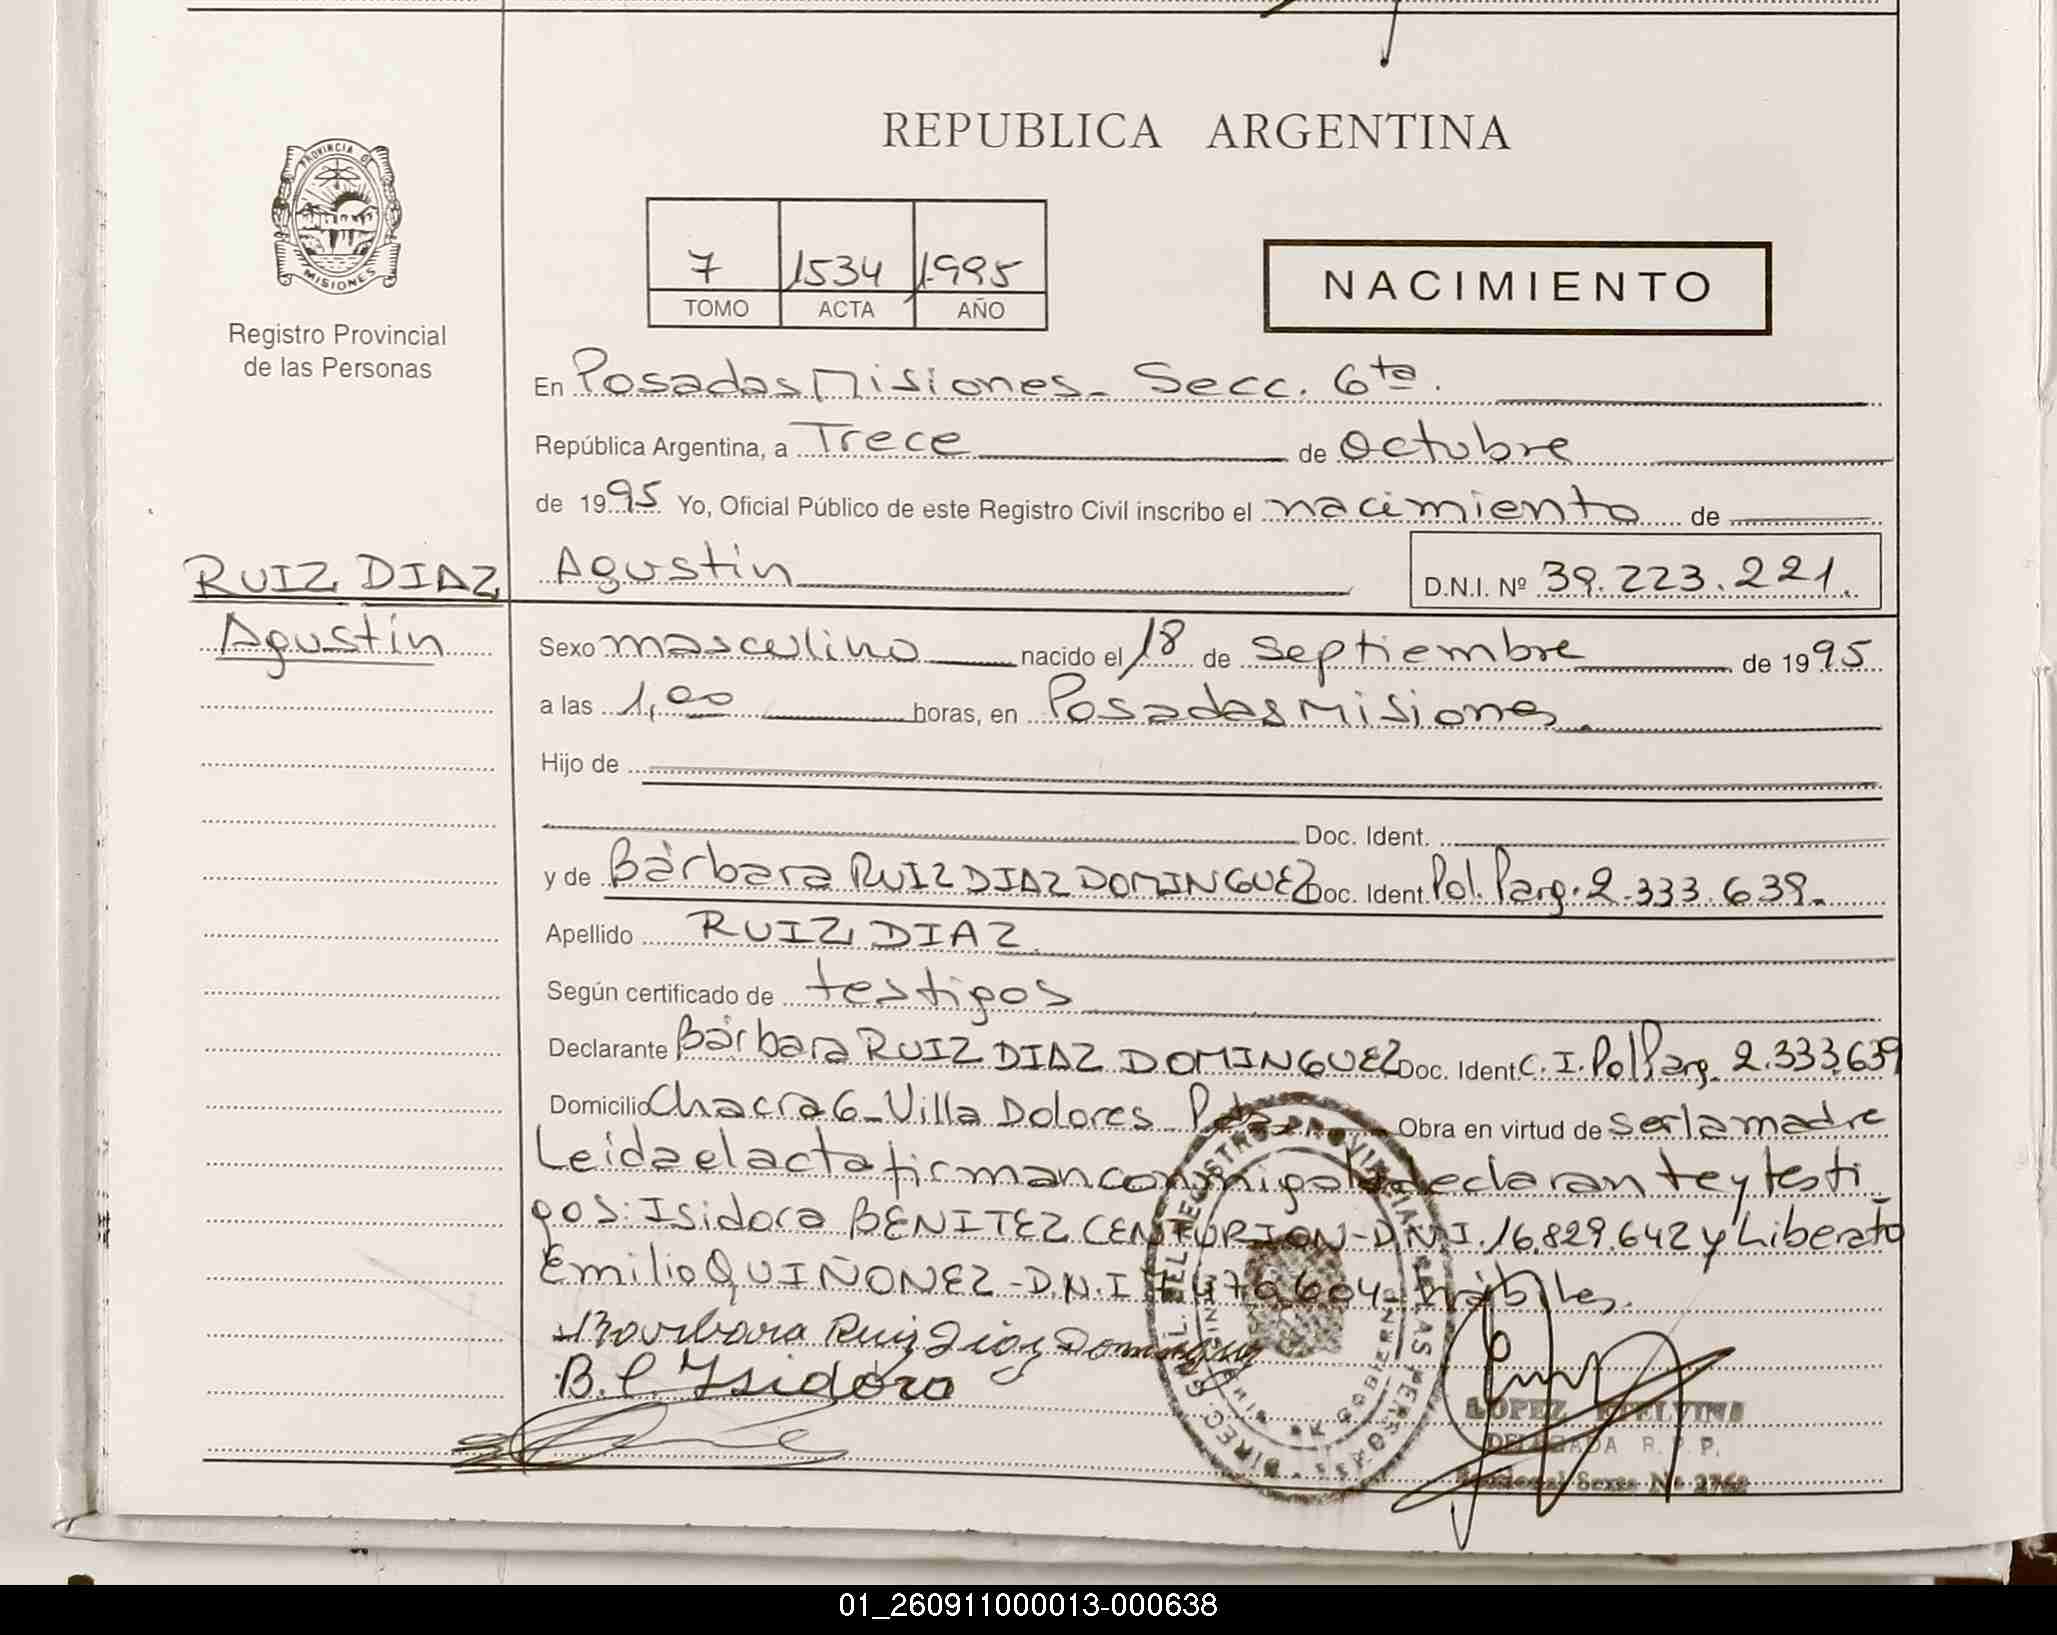 REPUBLICA ARGENTINA
PROVINCIA DE
MISIONES
Registro Provincial
de las Personas
7 1534 1995
TOMO ACTA AÑO
NACIMIENTO
En Posadas Misiones- Secc. 6ta.
República Argentina, a Trece de Octubre
de 1995 Yo, Oficial Público de este Registro Civil inscribo el nacimiento de
RUIZ DIAZ
Agustín
Agustín D.N.I. Nº 39.223.221.
Sexo masculino nacido el 18 de septiembre de 1995
a las 1,00 horas, en Posadas Misiones.
Hijo de
Doc. Ident.
y de Bárbara RUIZ DIAZ DOMINGUEZ Doc. Ident. Pol. Parg. 2.333.639.
Apellido RUIZ DIAZ.
Según certificado de testigos
Declarante Bárbara RUIZ DIAZ DOMINGUEZ Doc. Ident. C.I. Pol Parg. 2.333.639
Domicilio Chacra 6- Villa Dolores- Pdas Obra en virtud de ser la madre
Leida el acta firman conmigo la declarante y testi
gos: Isidora BENITEZ CENTURION-D.N.I. 16.829.642 y Liberato
Emilio QUIÑONEZ-D.N.I 7.470.604- hábiles.
Barbara Ruiz Diaz Dominguez
B. C. Isidora
DIREC. GRAL. DEL REGISTRO PROVINCIAL DE LAS PERSONAS
GOBIERNO
LOPEZ ETELVINA
DELEGADA R. P. P.
Seccional Sexta Nº 2762
01_260911000013-000638